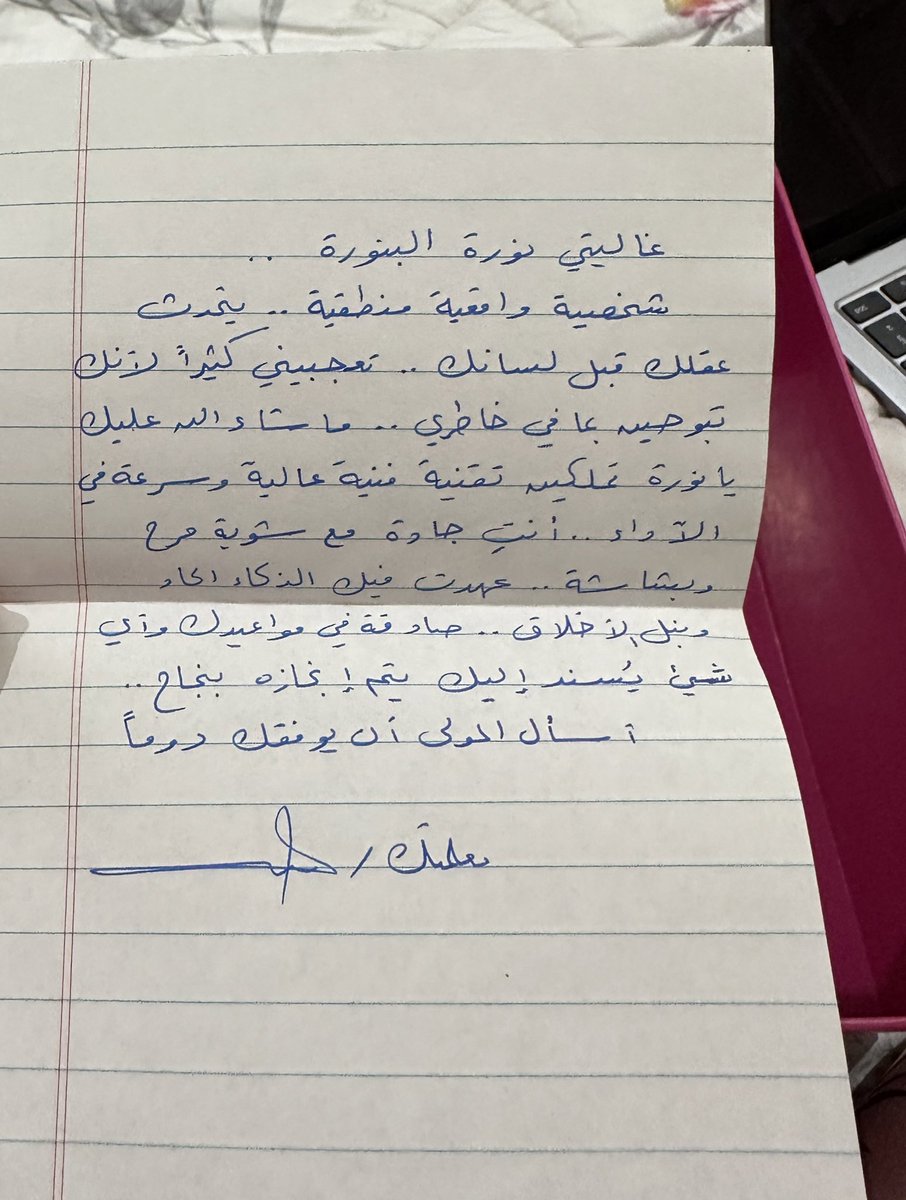 غاليتي نورة البنورة ..
شخصية واقعية منطقية .. يتحدث
عقلك قبل لسانك .. تعجبيني كثيراً لأنك
تبوحين بما في خاطري .. ما شاء الله عليك
يا نورة تملكين تقنية فنية عالية وسرعة في
الآداء .. أنتِ جادة مع شوية مرح
وبشاشة .. عهدت فيك الذكاء الحاد
ونبل الأخلاق .. صادقة في مواعيدك وأي
شيئ يُسند إليك يتم إنجازه بنجاح ..
أسأل المولى أن يوفقك دوماً
معلمتك /